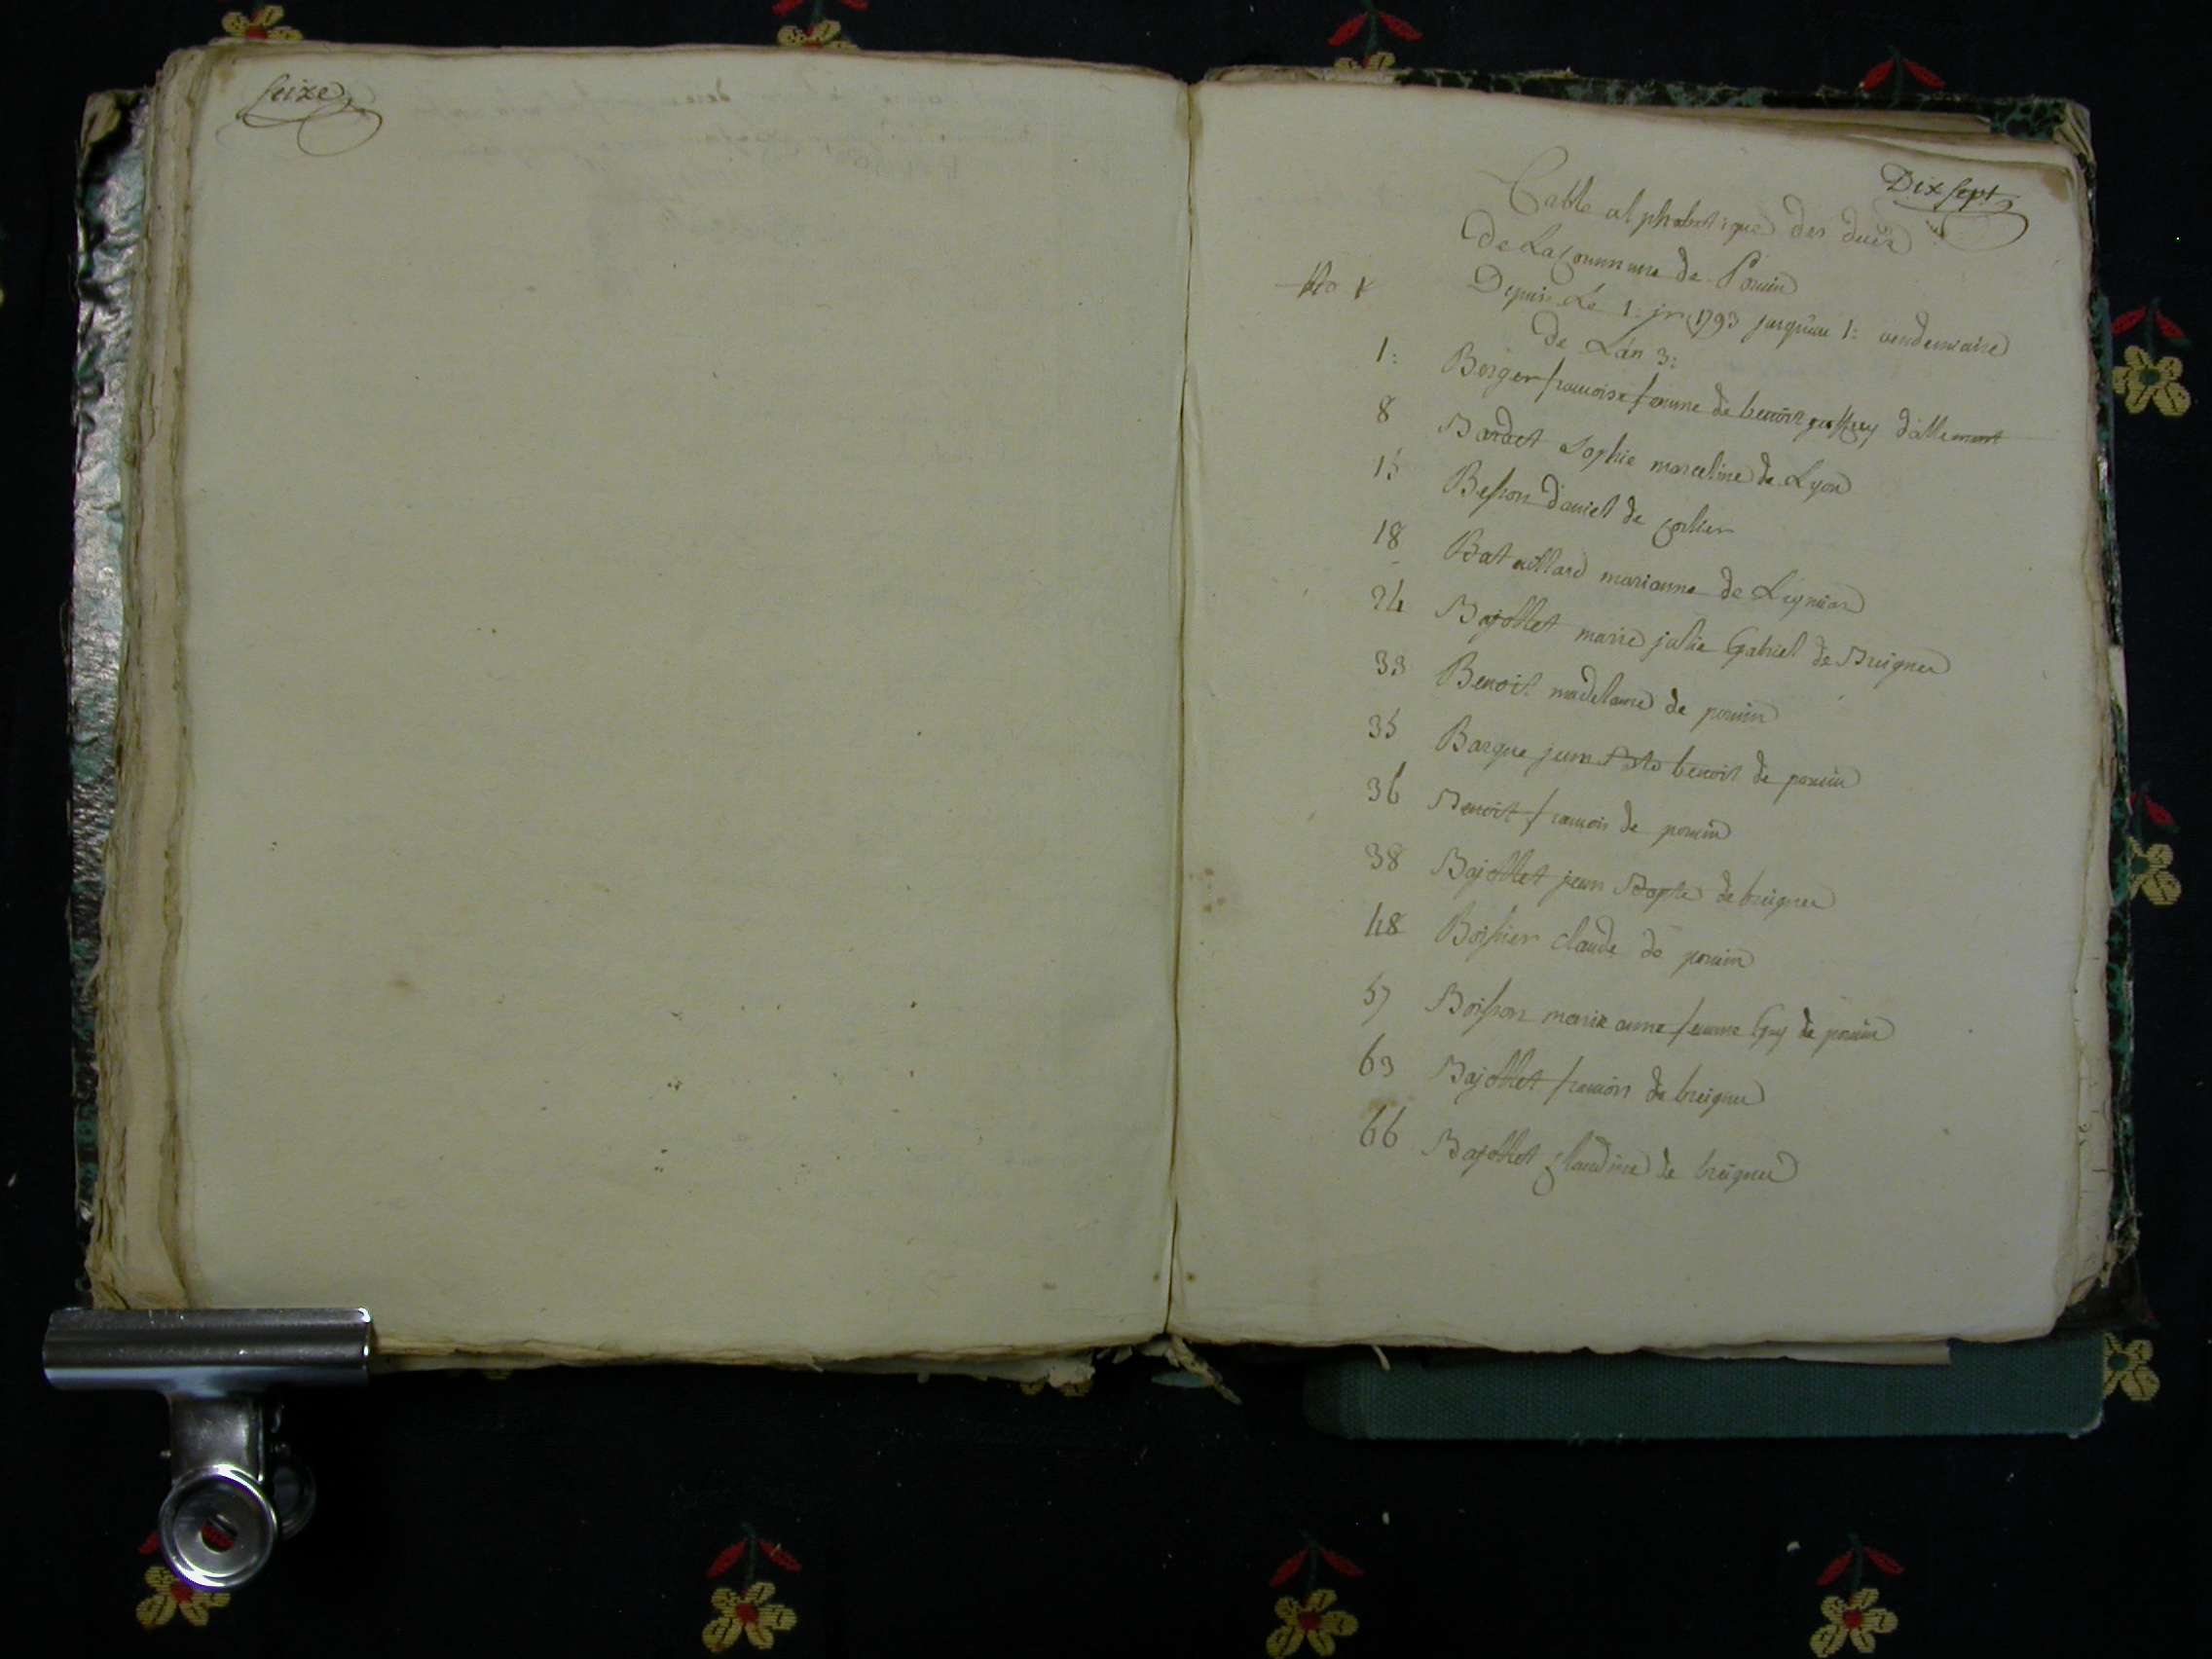 Seize
Dix sept
Table alphabetique des decés
De La Commune de Poncin
Depuis Le 1: jer 1793 jusqu'au 1: vendemiaire
de Lan 3:
1: Berger francoise femme de benoit dallement
8 Bardet Sophie marceline de Lyon
15 Besson daniel de corlier
18 Bataillard marianne de
24 Bajollet marie julie Gabriel de Breignes
33 Benoit madelaine de poncin
35 Barque jean Bte benoit de poncin
36 Benoit francois de poncin
38 Bajollet jean Bapte de breignes
48 Boissier claude de poncin
57 Boisson marie anne femme Guy de poncin
63 Bajollet francois de breignes
66 Bajollet Claudine de breignes